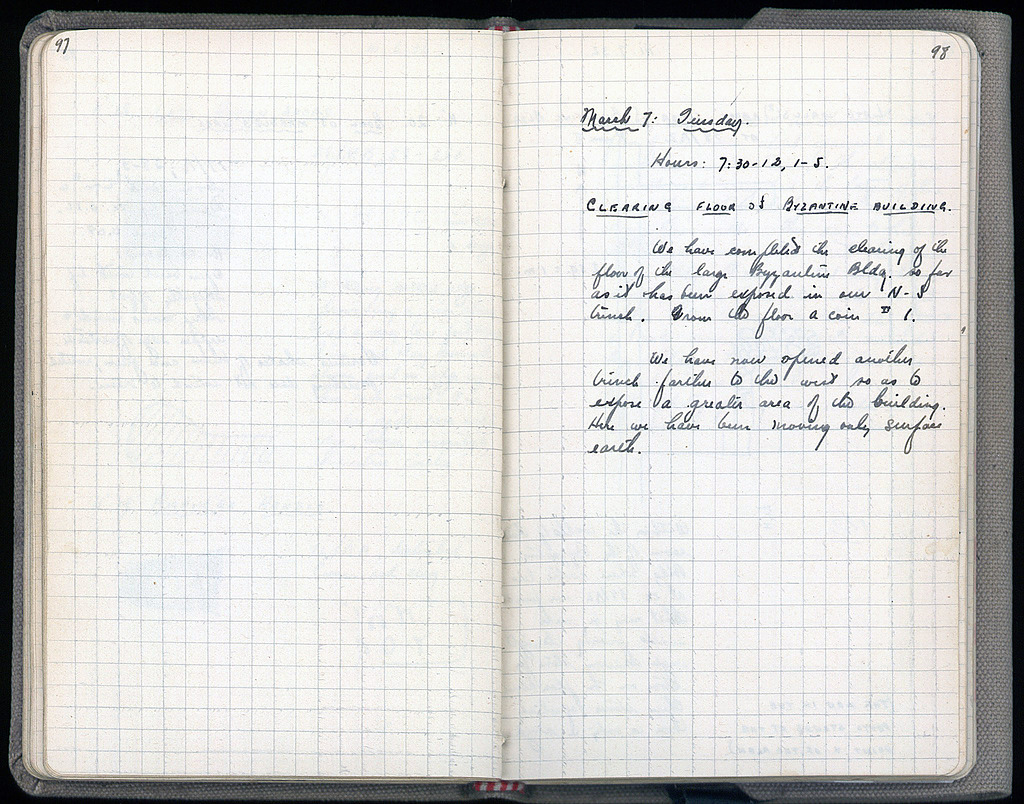 97
98
March 7: Tuesday.
Hours: 7:30-12, 1-5.
CLEARING FLOOR of BYZANTINE BUILDING.
We have completed the clearing of the
floor of the large Byzantine Bldg. so far
as it has been exposed in our N-S
trench. From the floor a coin # 1.
We have now opened another
trench farther to the west so as to
expose a greater area of the building.
Here we have been moving only surface
earth.